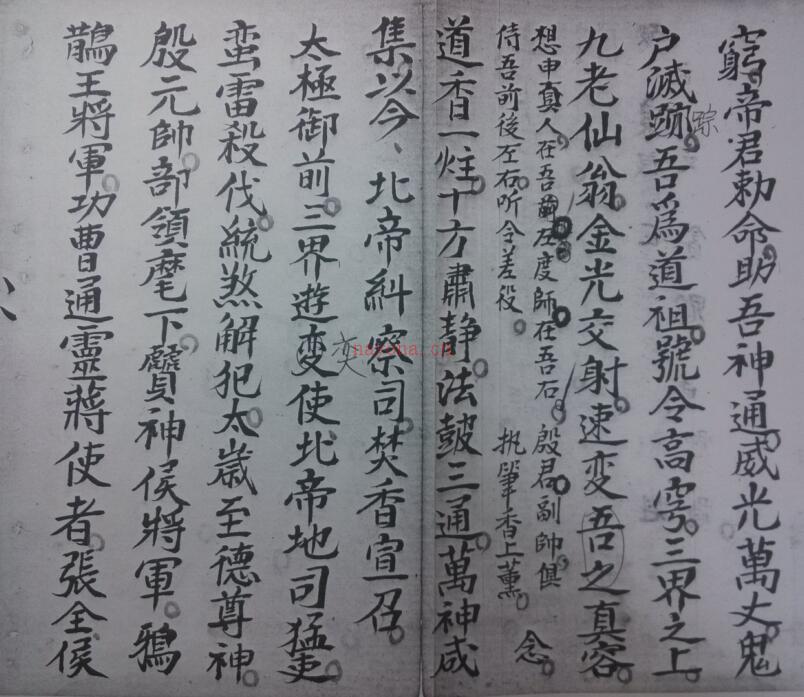 窮。帝君勅命。助吾神通。威光萬丈。鬼
户滅跡。吾爲道祖。號令高穹。三界之上。
踪
九老仙翁。金光交射。速变吾之真容。
想申真人在吾前左度師在吾右。殷君副帥俱
侍吾前後左右听令差役。 执筆香上薰。 念。
道香一炷。十方肅静。法皷三通。萬神咸
集。以今、北帝糾察司。焚香宣召。
太極御前。三界遊变使北帝地司猛吏。
变
蛮雷殺伐。統煞解犯。太歲至德尊神。
殷元帥。部領麾下。贒神侯將軍。鴉
鵲王將軍。功曹通靈蔣使者。張全侯
nayona.cn